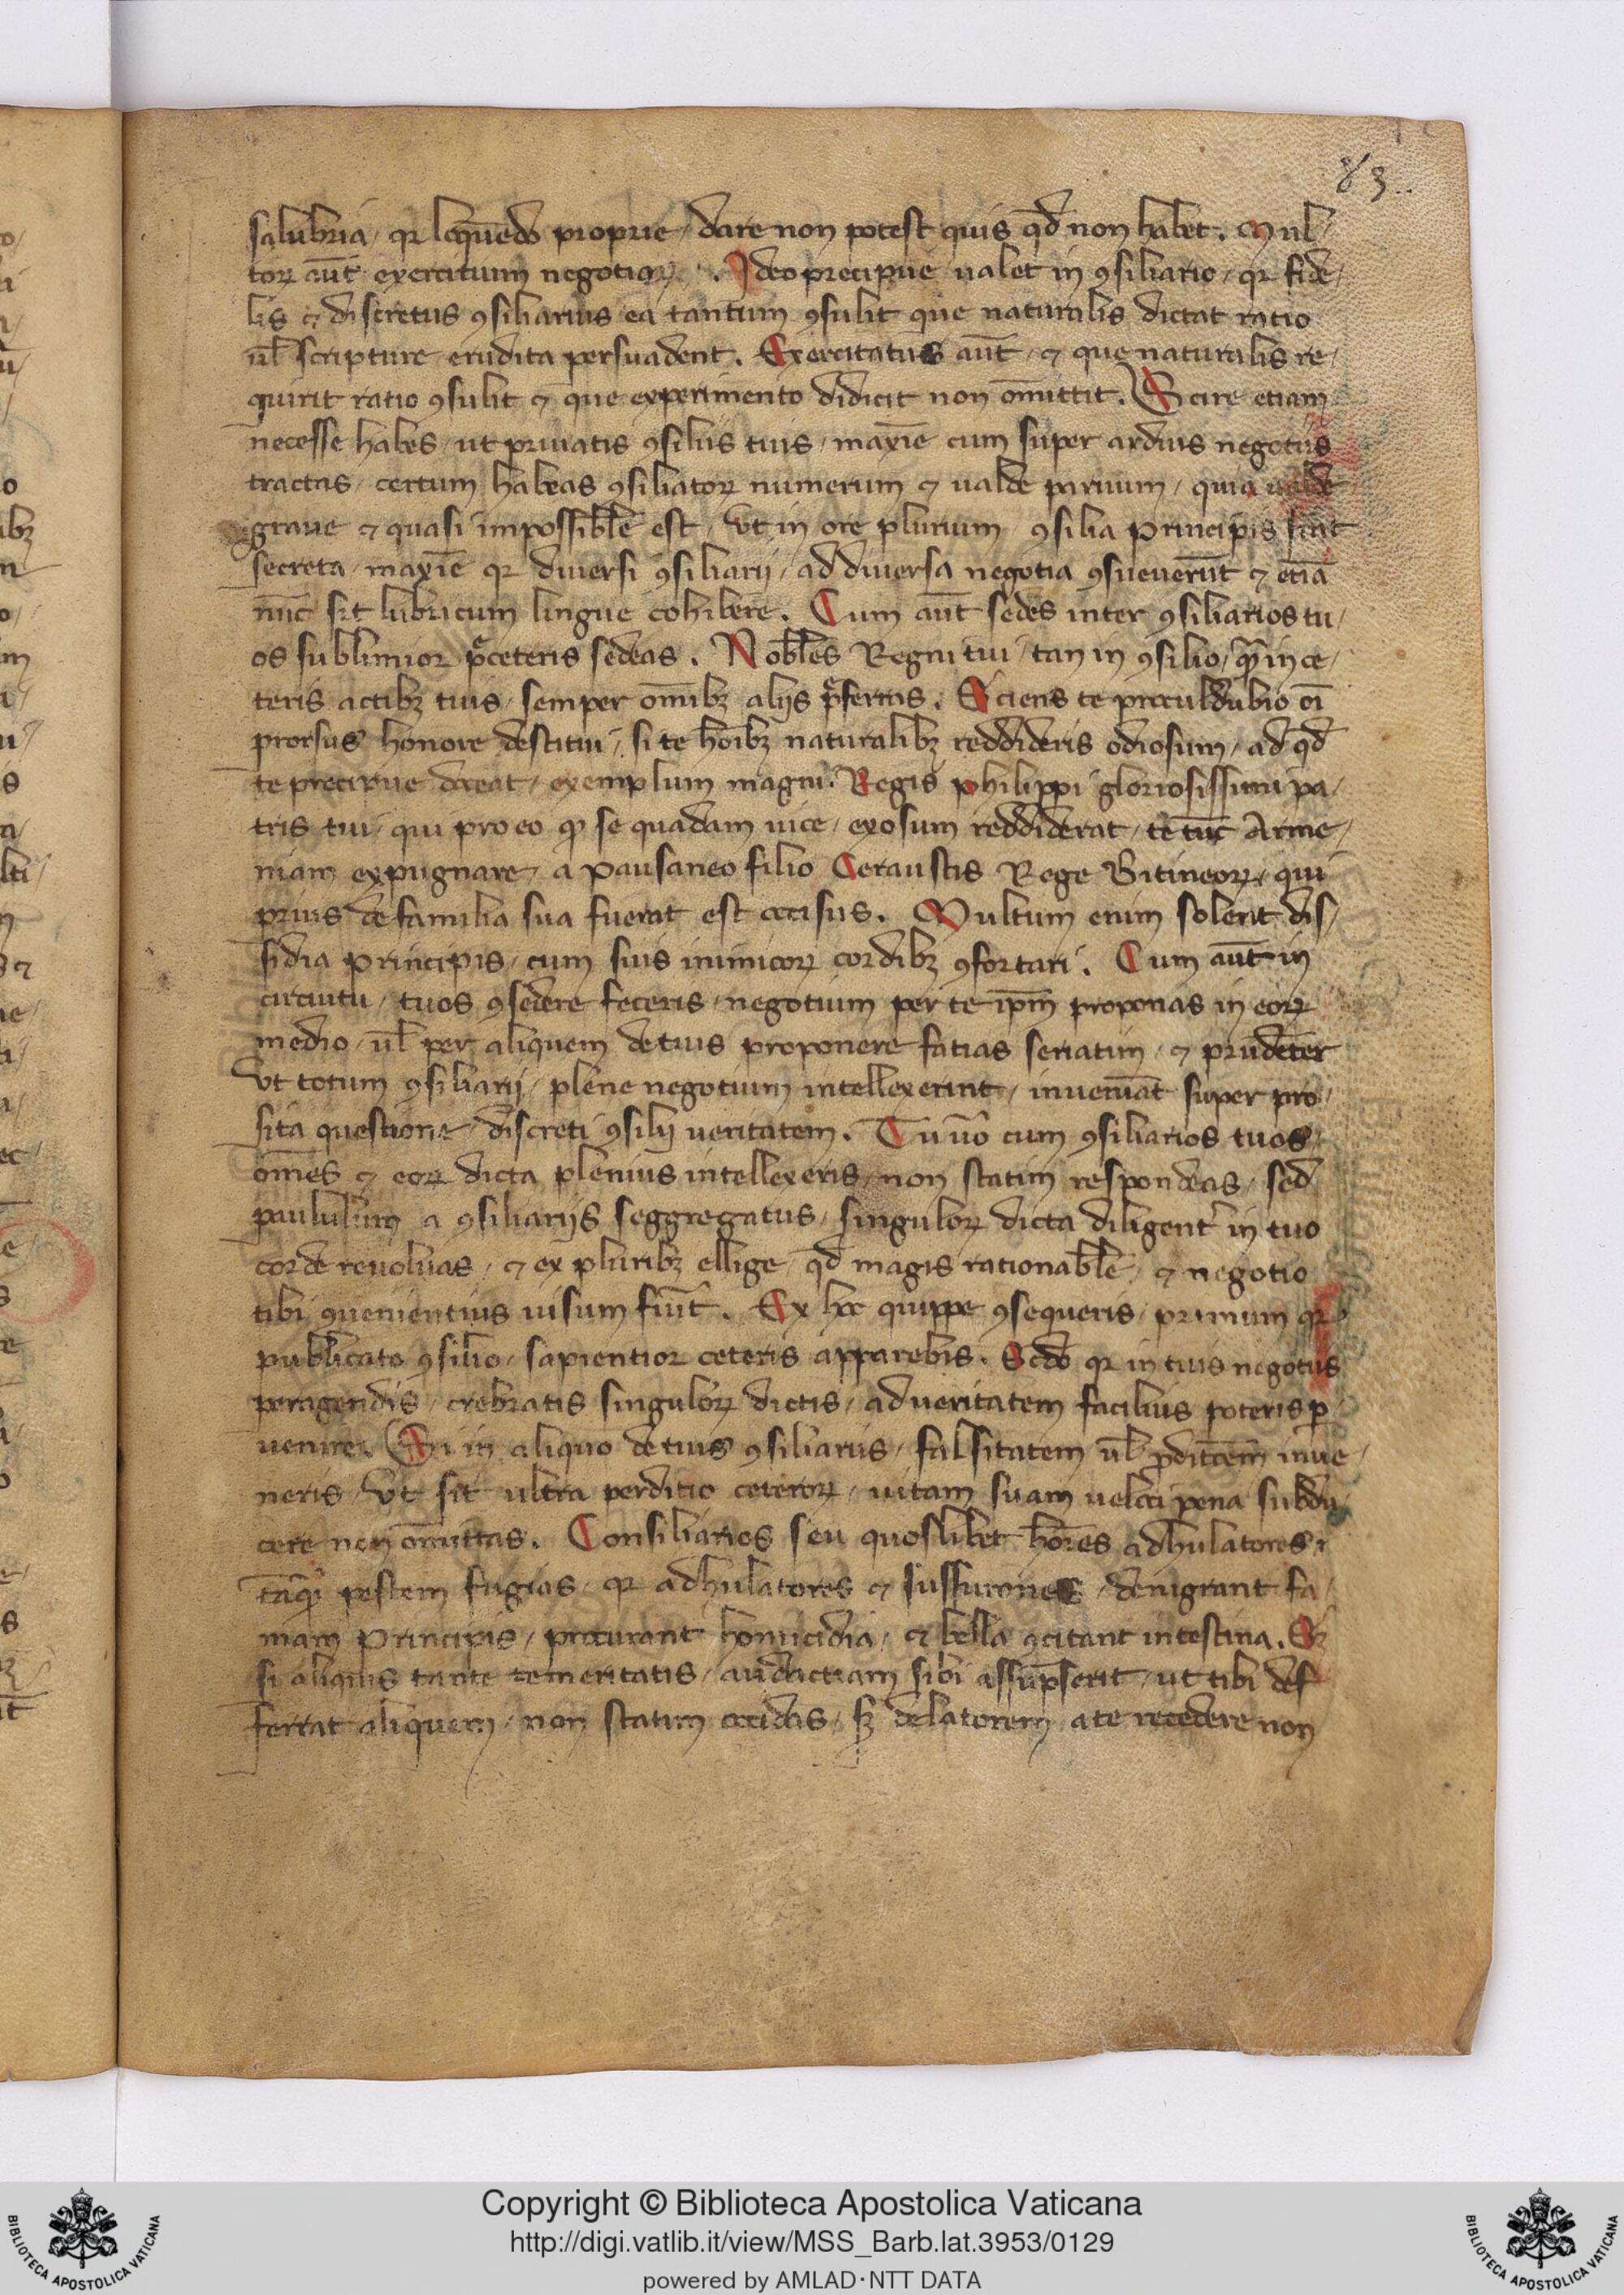 83..
salubria / qr loquēdo proprie / dare non potest quis qd̄ non habet. Mul/
torꝝ aūt exercitium negotioꝝ. Ideo precipue ualet in ꝯsiliario / qr fide/
lis ⁊ discretus ꝯsiliarius ea tantum ꝯsulit que naturalis dictat ratio
ul̄ scripture erudita persuadent. Exercitatus aūt / ⁊ que naturalis re/
quirit ratio ꝯsulit ⁊ que experimento didicit non om̄ittit. Scire etiam
necesse habes / ut priuatis ꝯsiliis tuis / maxīe cum super arduis negotiis
tractas / certum habeas ꝯsiliatorꝝ numerum ⁊ ualde paruum / quia ualde
graue ⁊ quasi impossibl̄e est / ut in ore plurium / ꝯsilia principis sint
secreta / maxīe qr diuersi ꝯsiliarij / ad diuersa negotia ꝯsueuerūt ⁊ etiā
nūc sit lubricum lingue cohibere. Cum aūt sedes inter ꝯsiliarios tu/
os sublimior p̄ceteris sedeas. Nobl̄es Regni tui / tan in ꝯsilio / qͣ in ce/
teris actibꝫ tuis / semper om̄ibꝫ alijs p̄feras. Sciens te proculdubio oī
prorsus honore destitui / si te hoībꝫ naturalibꝫ reddideris odiosum / ad qd̄
te precipue doceat / exemplum magni. Regis philippi gloriosissimi pa/
tris tui / qui pro eo qͦ se quadam uice / exosum reddiderat / te tūc Arme/
niam expugnare / a Pausaneo filio Ceraustis Rege Bitineorꝝ / qui
prius de familia sua fuerat est occisus. Multum enim solent dis/
sidia principis / cum suis inimicorꝝ cordibꝫ ꝯfortari. Cum aūt in
circuitu / tuos ꝯsedere feceris / negotium per te ip̄m proponas in eorꝝ
medio / ul̄ per aliquem de tuis proponere facias seriatim / ⁊ prudēter
ut totum ꝯsiliarij / plene negotium intellexerint / inueniāt super pro/
sita questione / discreti ꝯsilij ueritatem. Tu uͦ cum ꝯsiliarios tuos
om̄es ⁊ eorꝝ dicta plenius intellexeris / non statim respondeas / sed
paululum a ꝯsiliarijs seggregatus / singulorꝝ dicta diligent̾ in tuo
corde reuoluas / ⁊ ex pluribꝫ ellige / qd̄ magis rationabl̄e / ⁊ negotio
tibi ꝯuenientius uisum fu̾it. Ex hoc quippe ꝯsequeris / primum qr
publicato ꝯsilio / sapientior ceteris apparebis. Scd̄o qr in tuis negotiis
peragendis / crebratis singulorꝝ dictis / ad ueritatem facilius poteris ꝑ/
uenire. Si in aliquo de tuis ꝯsiliariis / falsitatem ul̄ ꝓditōem inue/
neris / ut sit ultra perditio ceterorꝝ / uitam suam ueloci pena subdu/
cere non om̄ittas. Consiliarios seu quoslibet hoīes adhulatores /
tāqͣ pestem fugias / qr adhulatores ⁊ sussurones / denigrant fa/
mam principis / procurant homicidia / ⁊ bella ꝯcitant intestina. Et
si aliquis tante temeritatis / audactiam sibi assūpserit / ut tibi def/
ferrat aliquem / non statim occidas / sꝫ delatorem a te recedere non
Copyright © Biblioteca Apostolica Vaticana
http://digi.vatlib.it/view/MSS_Barb.lat.3953/0129
powered by AMLAD·NTT DATA
BIBLIOTECA APOSTOLICA VATICANA
BIBLIOTECA APOSTOLICA VATICANA